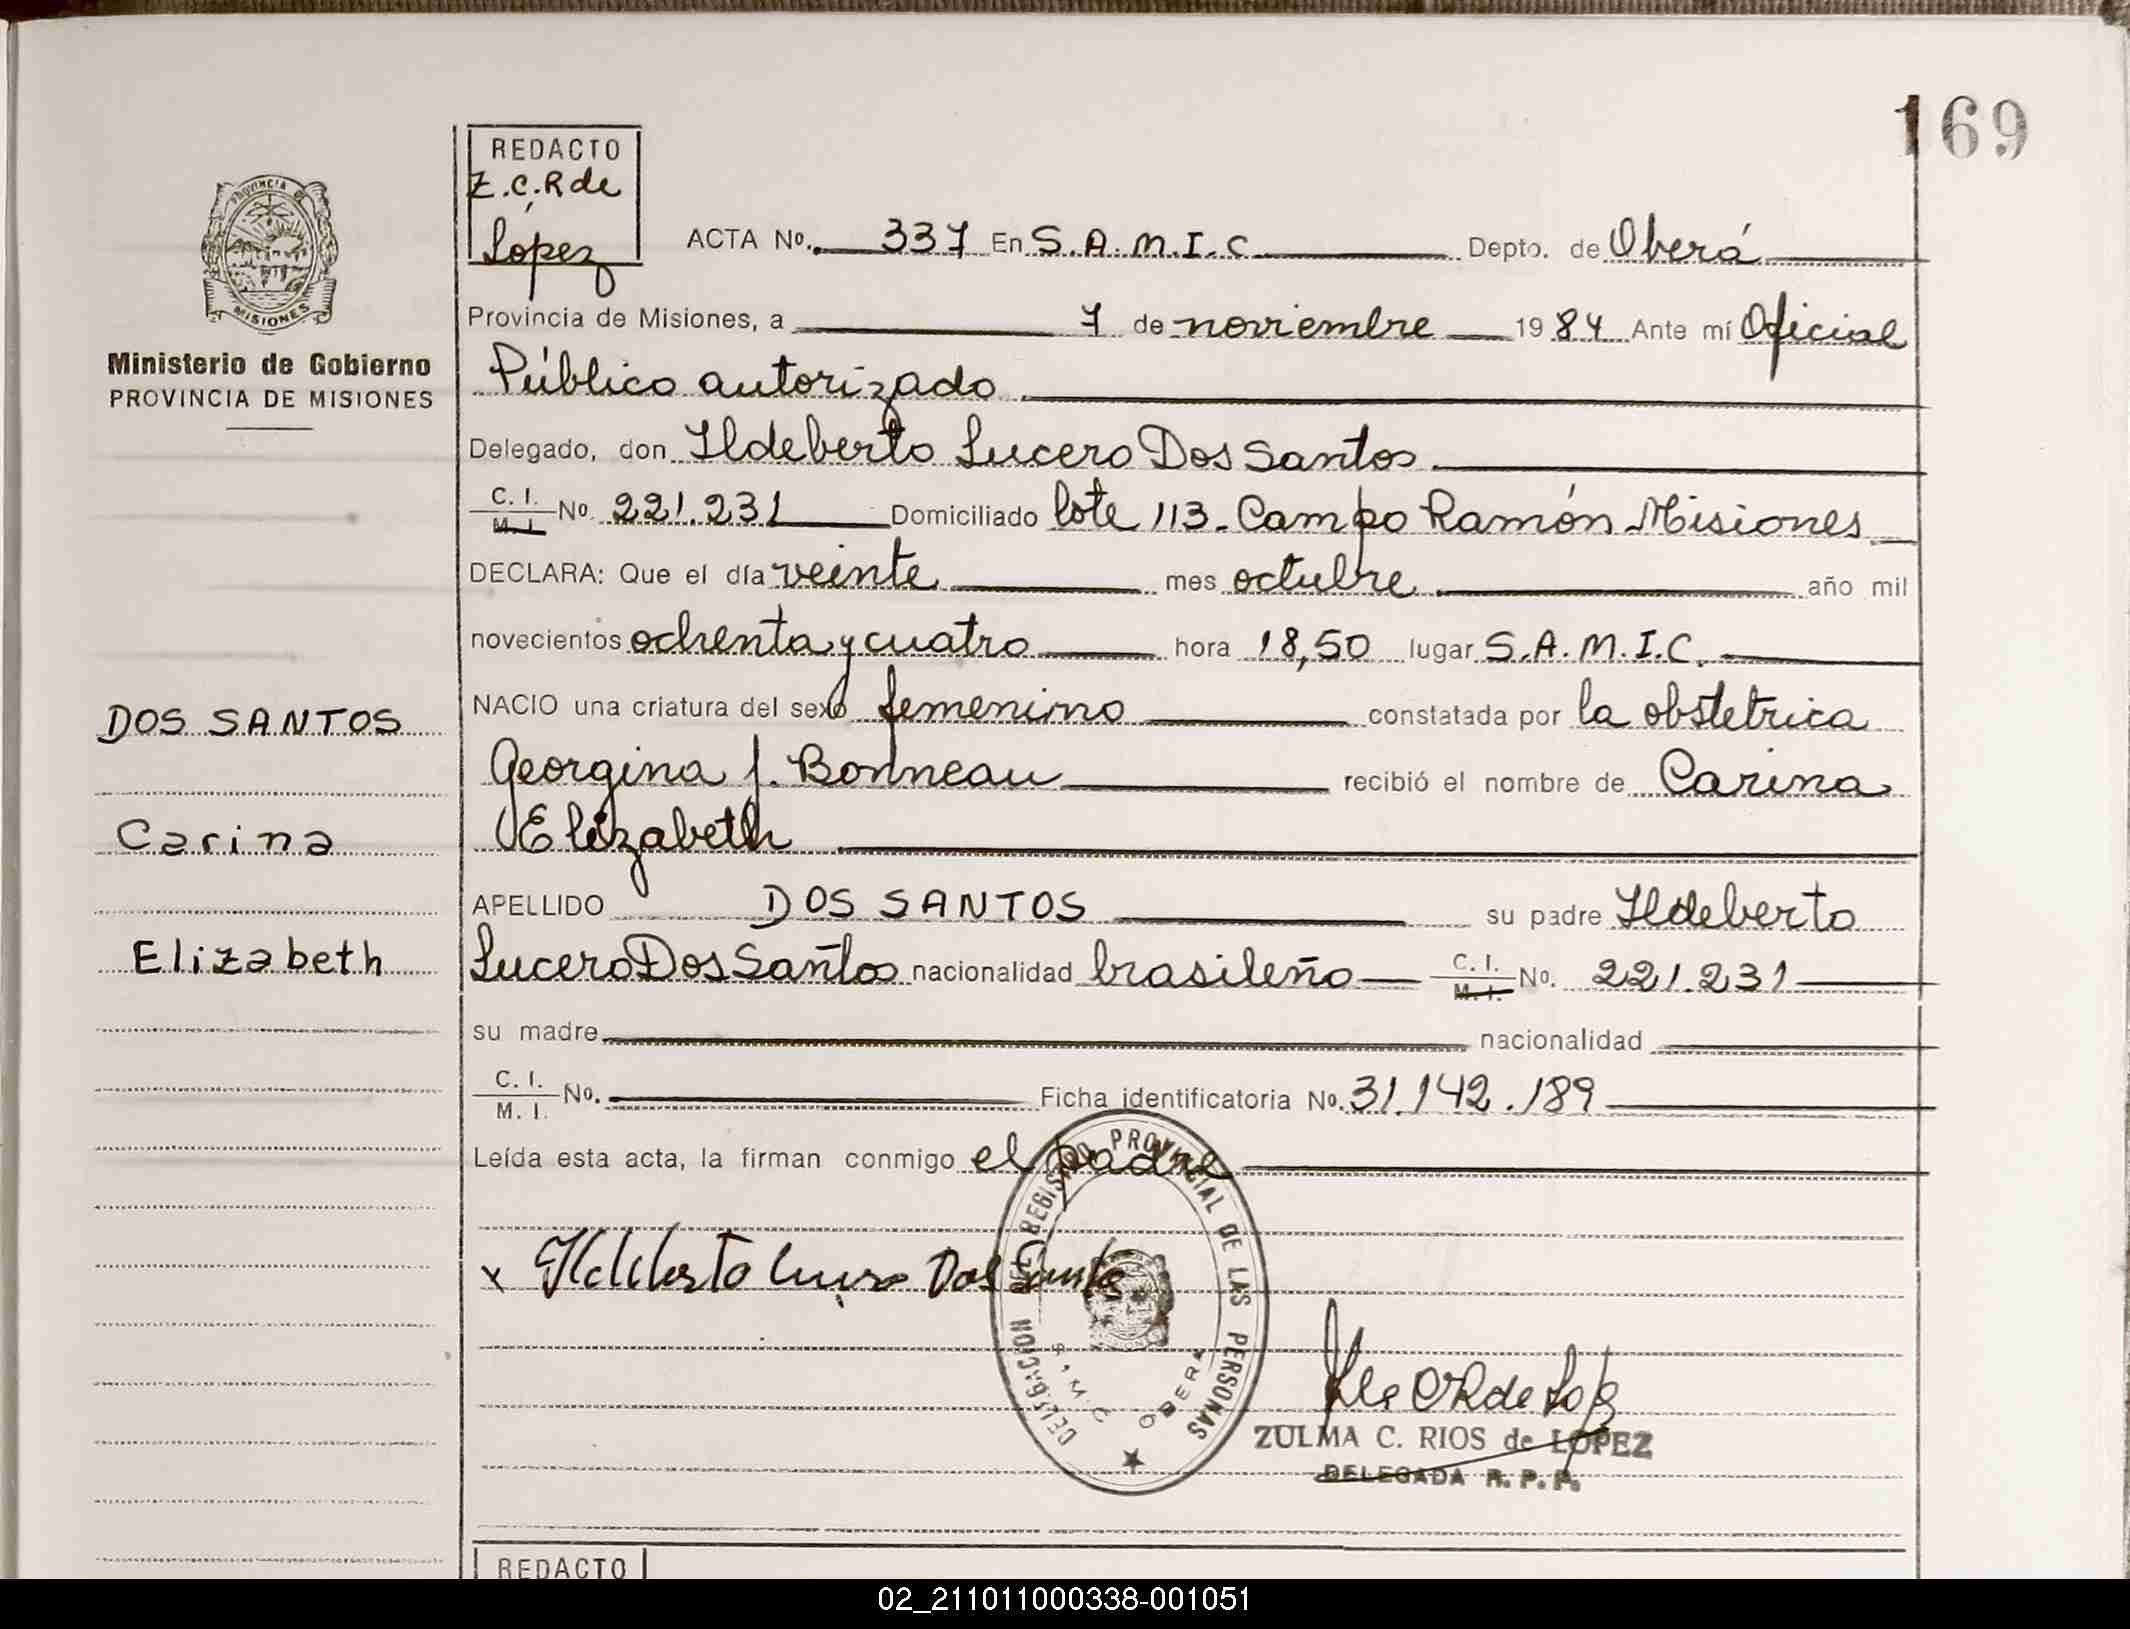 169
REDACTO
Z.C.R de
Lopez
PROVINCIA DE
MISIONES
ACTA No. 337 En S.A.M.I.C Depto. de Oberá
Provincia de Misiones, a 7 de noviembre 1984 Ante mí Oficial
Ministerio de Gobierno
PROVINCIA DE MISIONES
Público autorizado
Delegado, don Ildeberto Lucero Dos Santos
C. I.
M. I. No. 221.231 Domiciliado lote 113 - Campo Ramón Misiones
DECLARA: Que el día veinte mes octubre año mil
novecientos ochenta y cuatro hora 18,50 lugar S.A.M.I.C.
DOS SANTOS
NACIO una criatura del sexo femenino constatada por la obstetrica
Georgina J. Bonneau recibió el nombre de Carina
Carina
Elizabeth
APELLIDO DOS SANTOS su padre Ildeberto
Elizabeth
Lucero Dos Santos nacionalidad brasileño C. I.
M. I. No. 221.231
su madre nacionalidad
C. I.
M. I. No. Ficha identificatoria No. 31.142.189
Leída esta acta, la firman conmigo el padre
x Ildeberto Lucero Dos Santos
DELEGACION DEL REGISTRO PROVINCIAL DE LAS PERSONAS
S.A.M.I.C OBERA
ZULMA C. RIOS de LOPEZ
DELEGADA R. P. P.
REDACTO
02_211011000338-001051